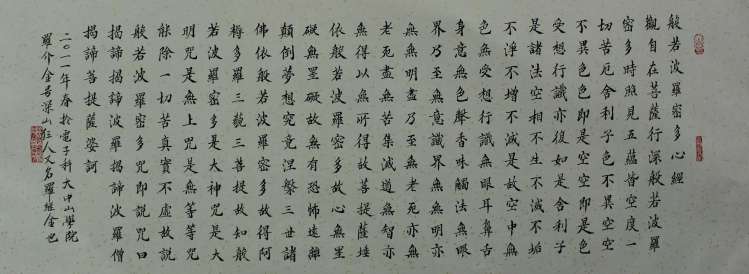 般若波羅密多心經
觀自在菩薩行深般若波羅
密多時照見五蘊皆空度一
切苦厄舍利子色不異空空
不異色色即是空空即是色
受想行識亦復如是舍利子
是諸法空相不生不滅不垢
不淨不增不減是故空中無
色無受想行識無眼耳鼻舌
身意無色聲香味觸法無眼
界乃至無意識界無無明亦
無無明盡乃至無老死亦無
老死盡無苦集滅道無智亦
無得以無所得故菩提薩埵
依般若波羅密多故心無罣
礙無罣礙故無有恐怖遠離
顛倒夢想究竟涅槃三世諸
佛依般若波羅密多故得阿
耨多羅三藐三菩提故知般
若波羅密多是大神咒是大
明咒是無上咒是無等等咒
能除一切苦真實不虛故說
般若波羅密多咒即說咒曰
揭諦揭諦波羅揭諦波羅僧
揭諦菩提薩婆訶
二〇一一年春於電子科大中山學院
羅介金号深山狂人又名羅維金也